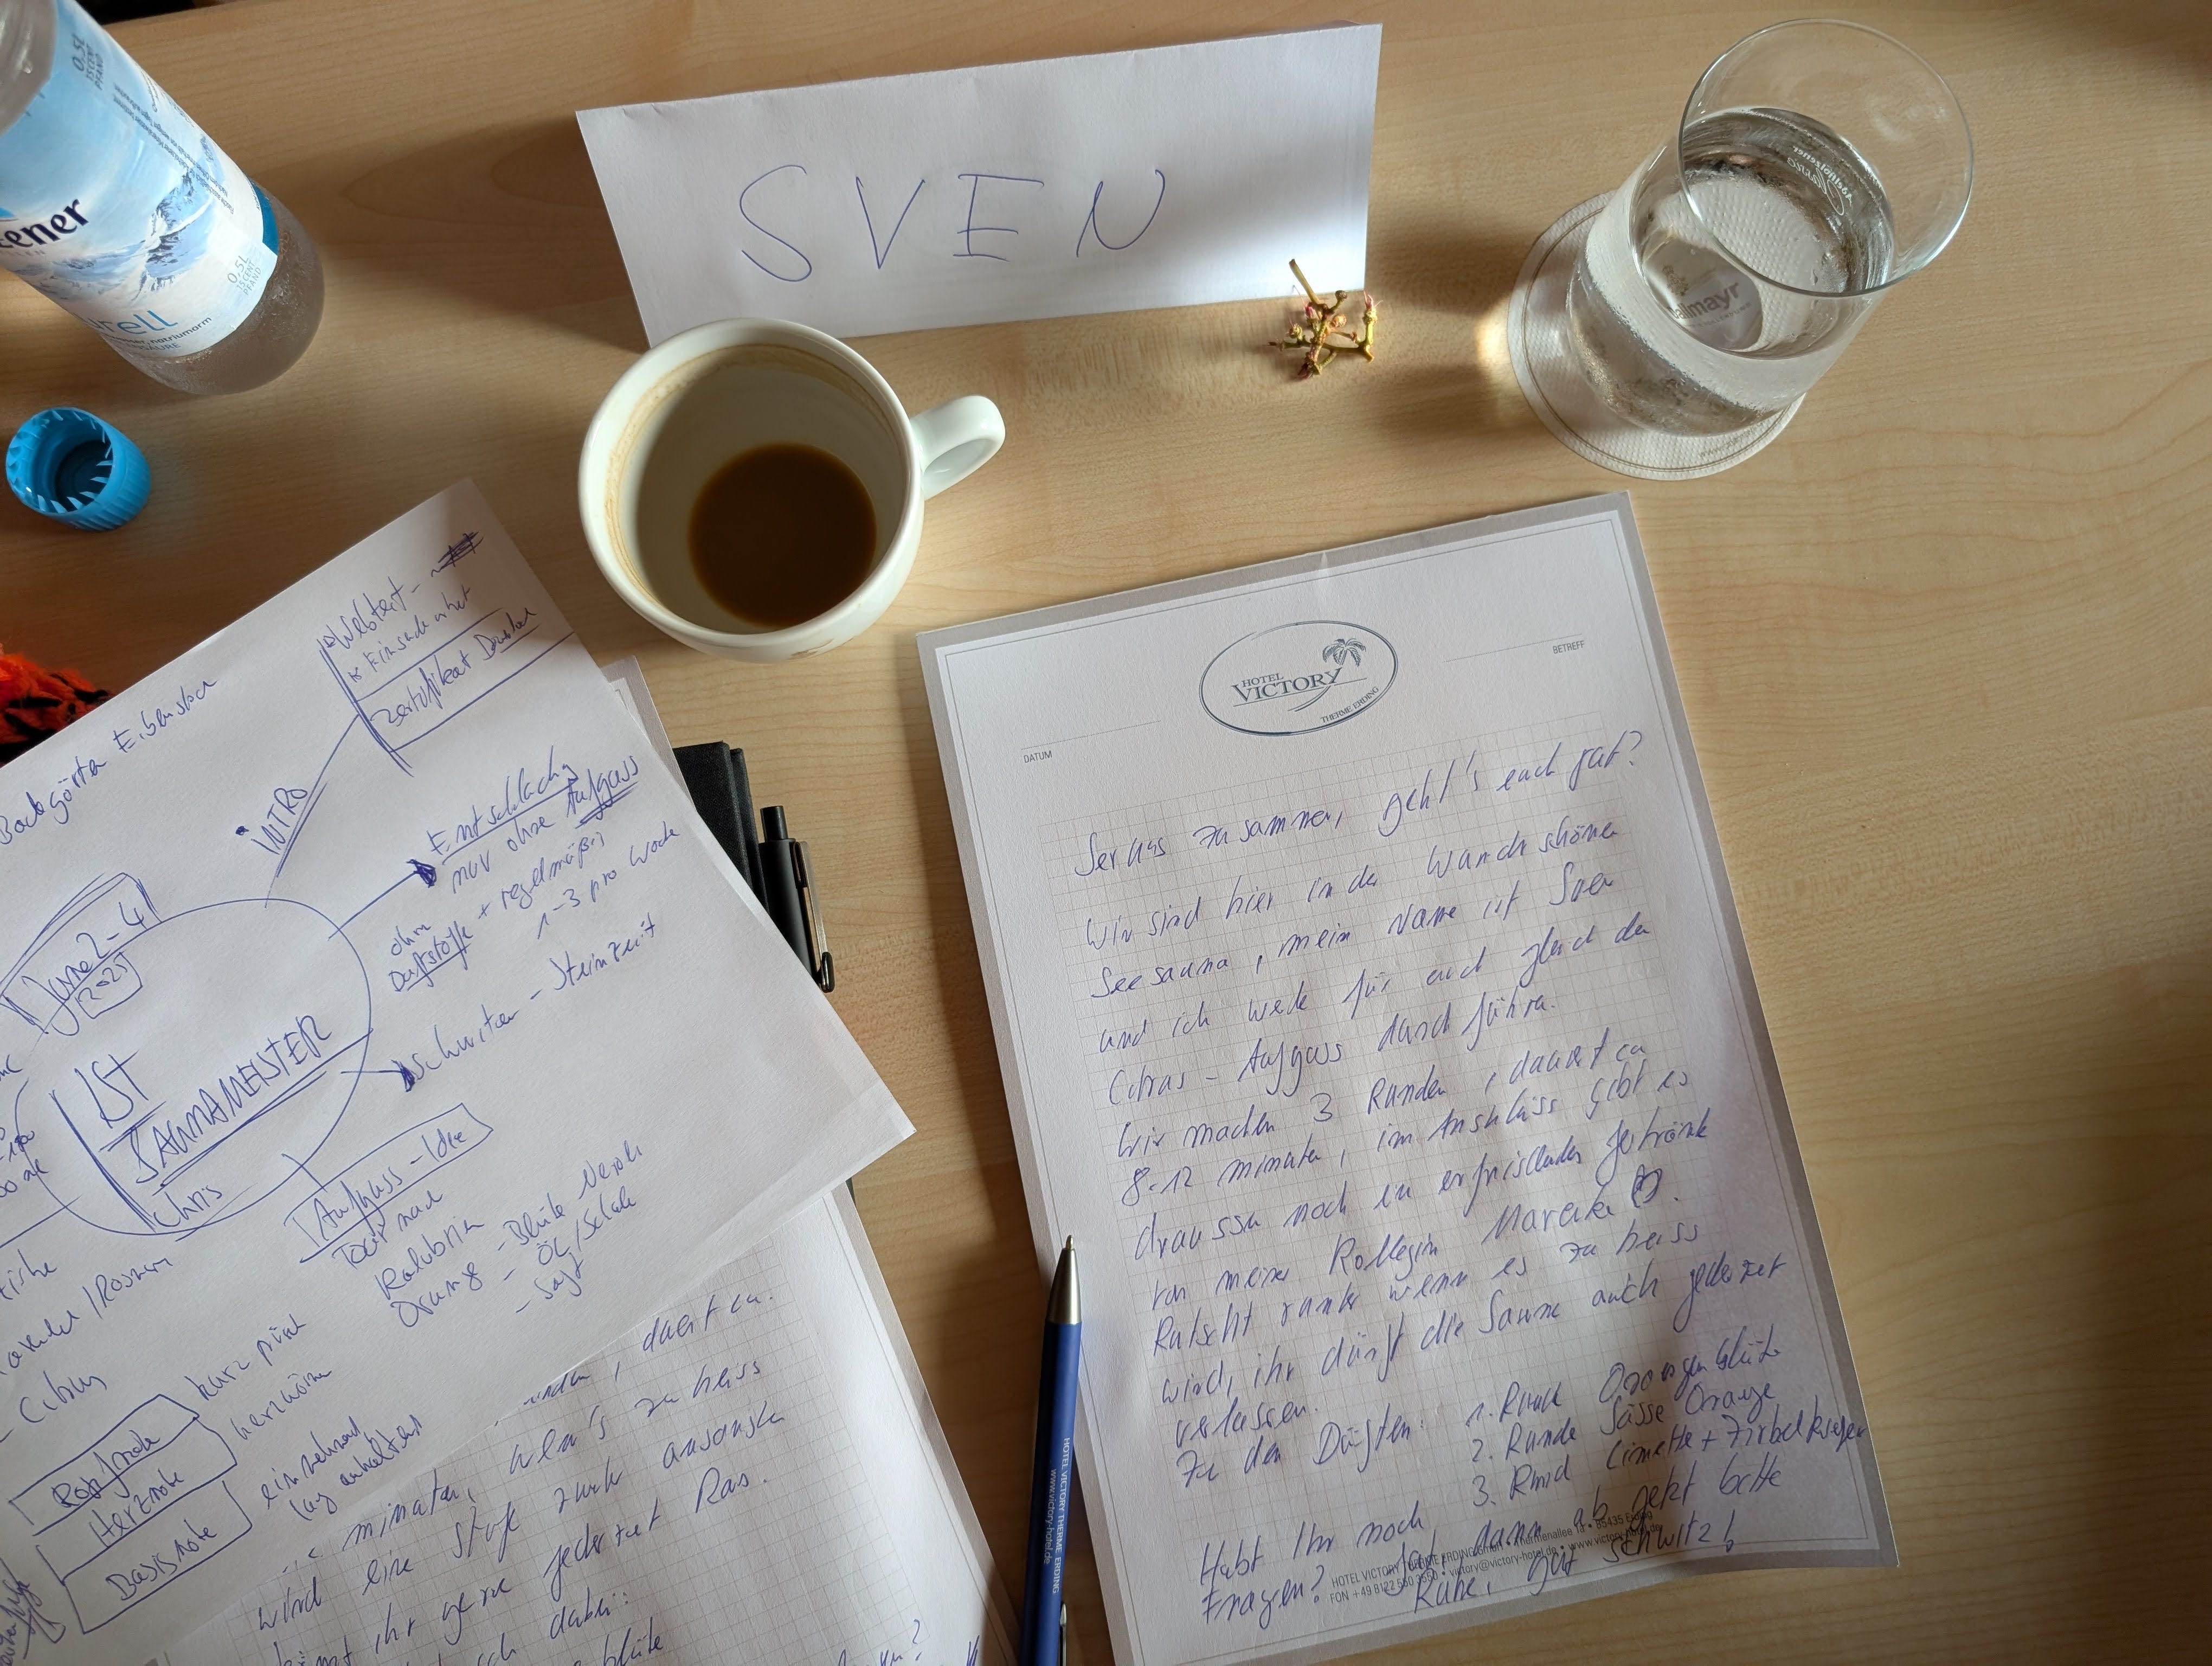 SVEN
0,5L
15CENT
PFAND
0,5L
15CENT
PFAND
Adelholzener
allmayr
HOTEL
VICTORY
THERME ERDING
DATUM
BETREFF
Servus zusammen, geht's euch gut?
Wir sind hier in der Wunderschönen
Seesauna, mein Name ist Sven
und ich werde für euch gleich den
Citrus-Aufguss durchführen.
Wir machen 3 Runden, dauert ca
8-12 minuten, im Anschluss gibt es
draussen noch ein erfrischendes Getränk
von meiner Kollegin Mareike.
Rutscht runter wenn es zu heiss
wird, ihr dürft die Sauna auch jederzeit
verlassen.
Zu den Düften: 1. Runde Orangenblüte
2. Runde Süsse Orange
3. Rund Limette + Zirbelkiefer
Habt Ihr noch
Fragen? dann ab jetzt bitte
Ruhe, gut schwitz!
HOTEL VICTORY THERME ERDING
85435 Erding
FON +49 8122 550 3550 victory@victory-hotel.de www.victory-hotel.de
HOTEL VICTORY THERME ERDING
www.victory-hotel.de
Eibenstock
INTRO
Webtest -
Zertifikat
Entschlackung
nur ohne Aufguss
ohne
Duftstoffe + regelmäßig
1-3 pro Woche
Schwitzen - Steinzeit
June 2-4
2025
IST
SAUNAMEISTER
Chris
Aufguss-Idee
Tour nach
Kalabrien
Orange - Blüte Neroli
- Öl/Schale
- Saft
Citrus
Kopfnote kurz
Herznote
Basisnote
lang anhaltend
, dauert ca.
minuten, wenn's zu heiss
wird eine Stufe runter
ihr gerne jederzeit Raus.
dabei:
blüte